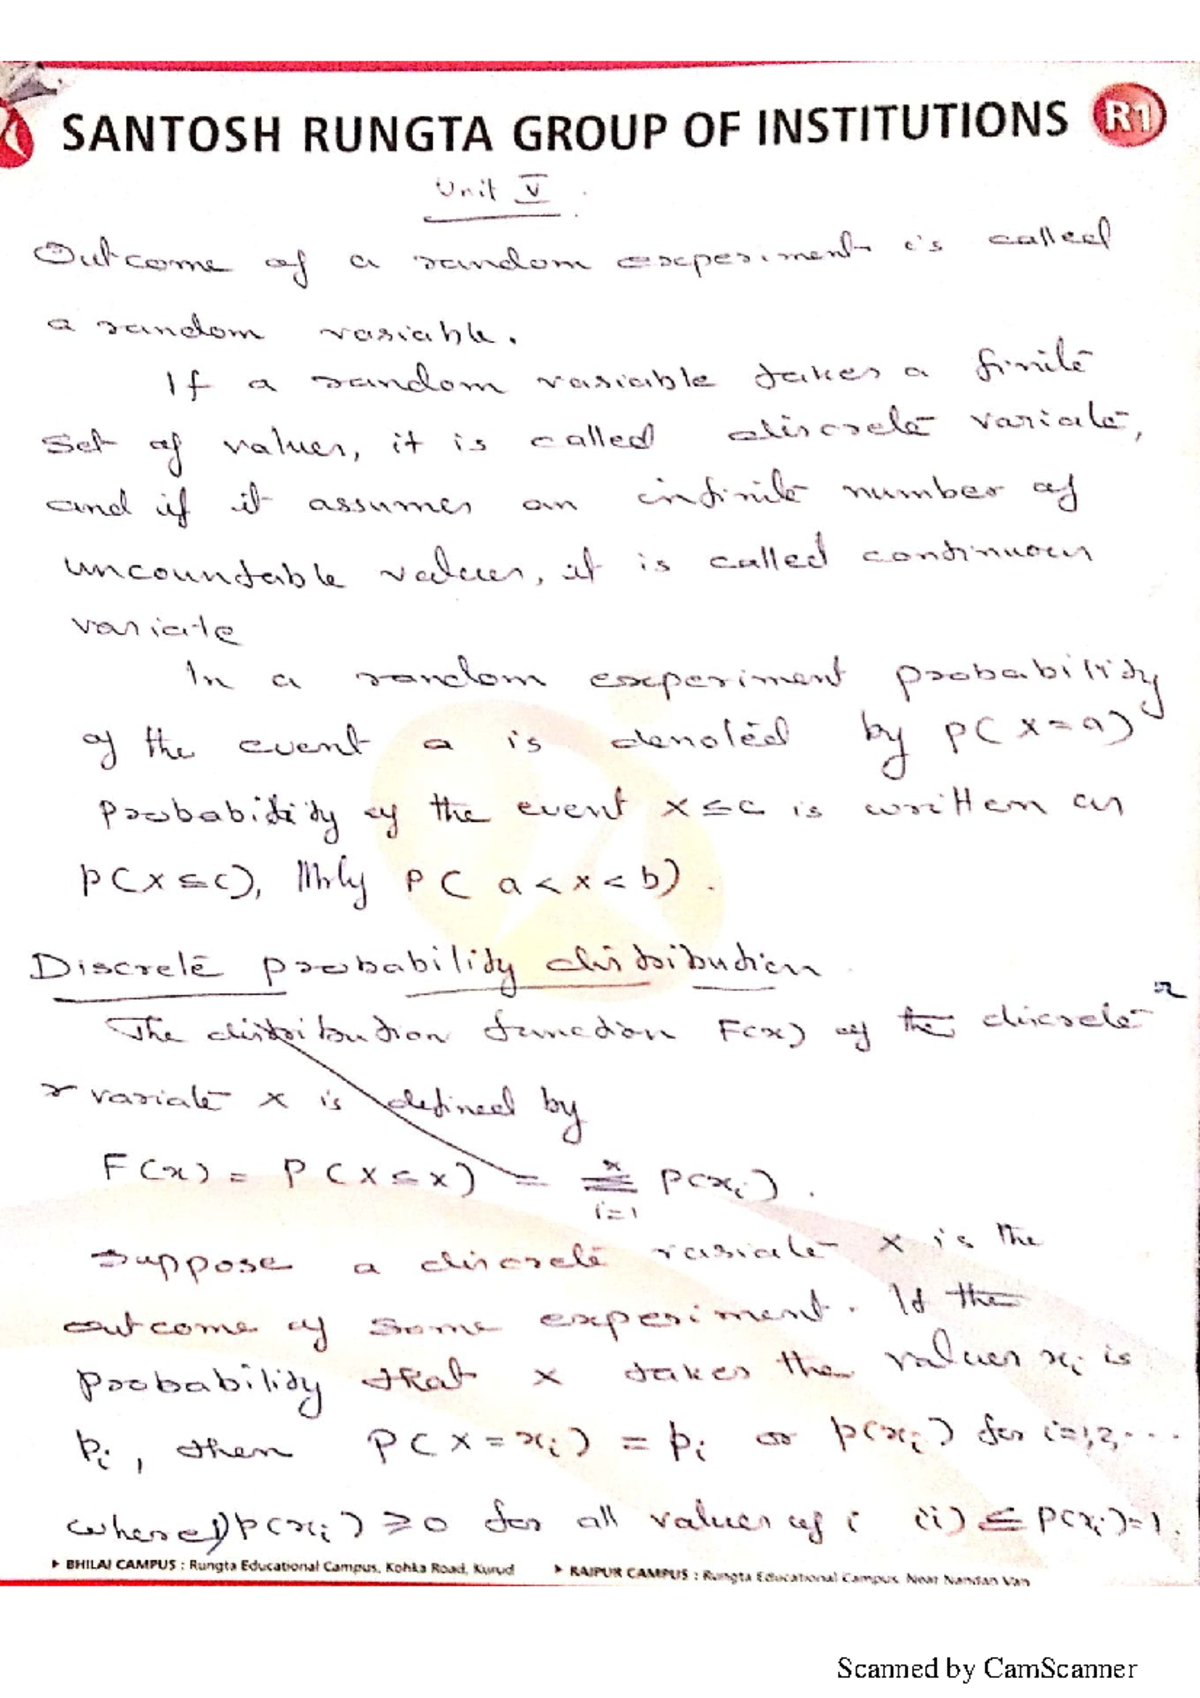 SANTOSH RUNGTA GROUP OF INSTITUTIONS R1
Unit V
Outcome of a random experiment is called
a random variable.
If a random variable takes a finite
set of values, it is called discrete variate,
and if it assumes an infinite number of
uncountable values, it is called continuous
variate
In a random experiment probability
of the event a is denoted by P(X=a)
Probability of the event X≤c is written as
P(X≤c), lllrly P(a<x<b).
Discrete probability distribution
The distribution function F(x) of the discrete
r variate X is defined by
F(x) = P(X≤x) = Σ P(xi).
x
i=1
Suppose a discrete variate X is the
outcome of some experiment. If the
probability that X takes the values xi is
pi, then P(X=xi) = pi or p(xi) for i=1,2,...
where i) p(xi) ≥0 for all values of i (ii) Σ P(xi)=1.
BHILAI CAMPUS : Rungta Educational Campus, Kohka Road, Kurud RAIPUR CAMPUS : Rungta Educational Campus, Near Nandan Van
Scanned by CamScanner